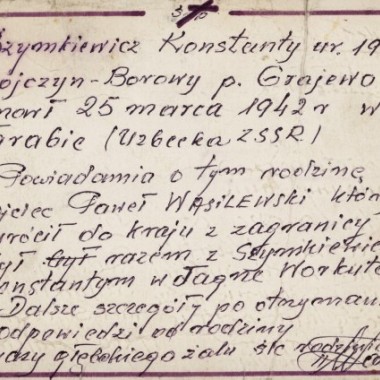 Szymkiewicz Konstanty ur. 19
ójczyn-Borowy p. Grajewo
marł 25 marca 1942 r w
(Uzbecka ZSSR)
Powiadamia o tym rodzinę
jciec Paweł WASILEWSKI któr
rócił do kraju z zagranicy
ył był razem z Szymkiewic
onstantym w łagrze Workuta
Dalsze szczegóły po otrzymani
odpowiedzi od rodziny
głębokiego żalu